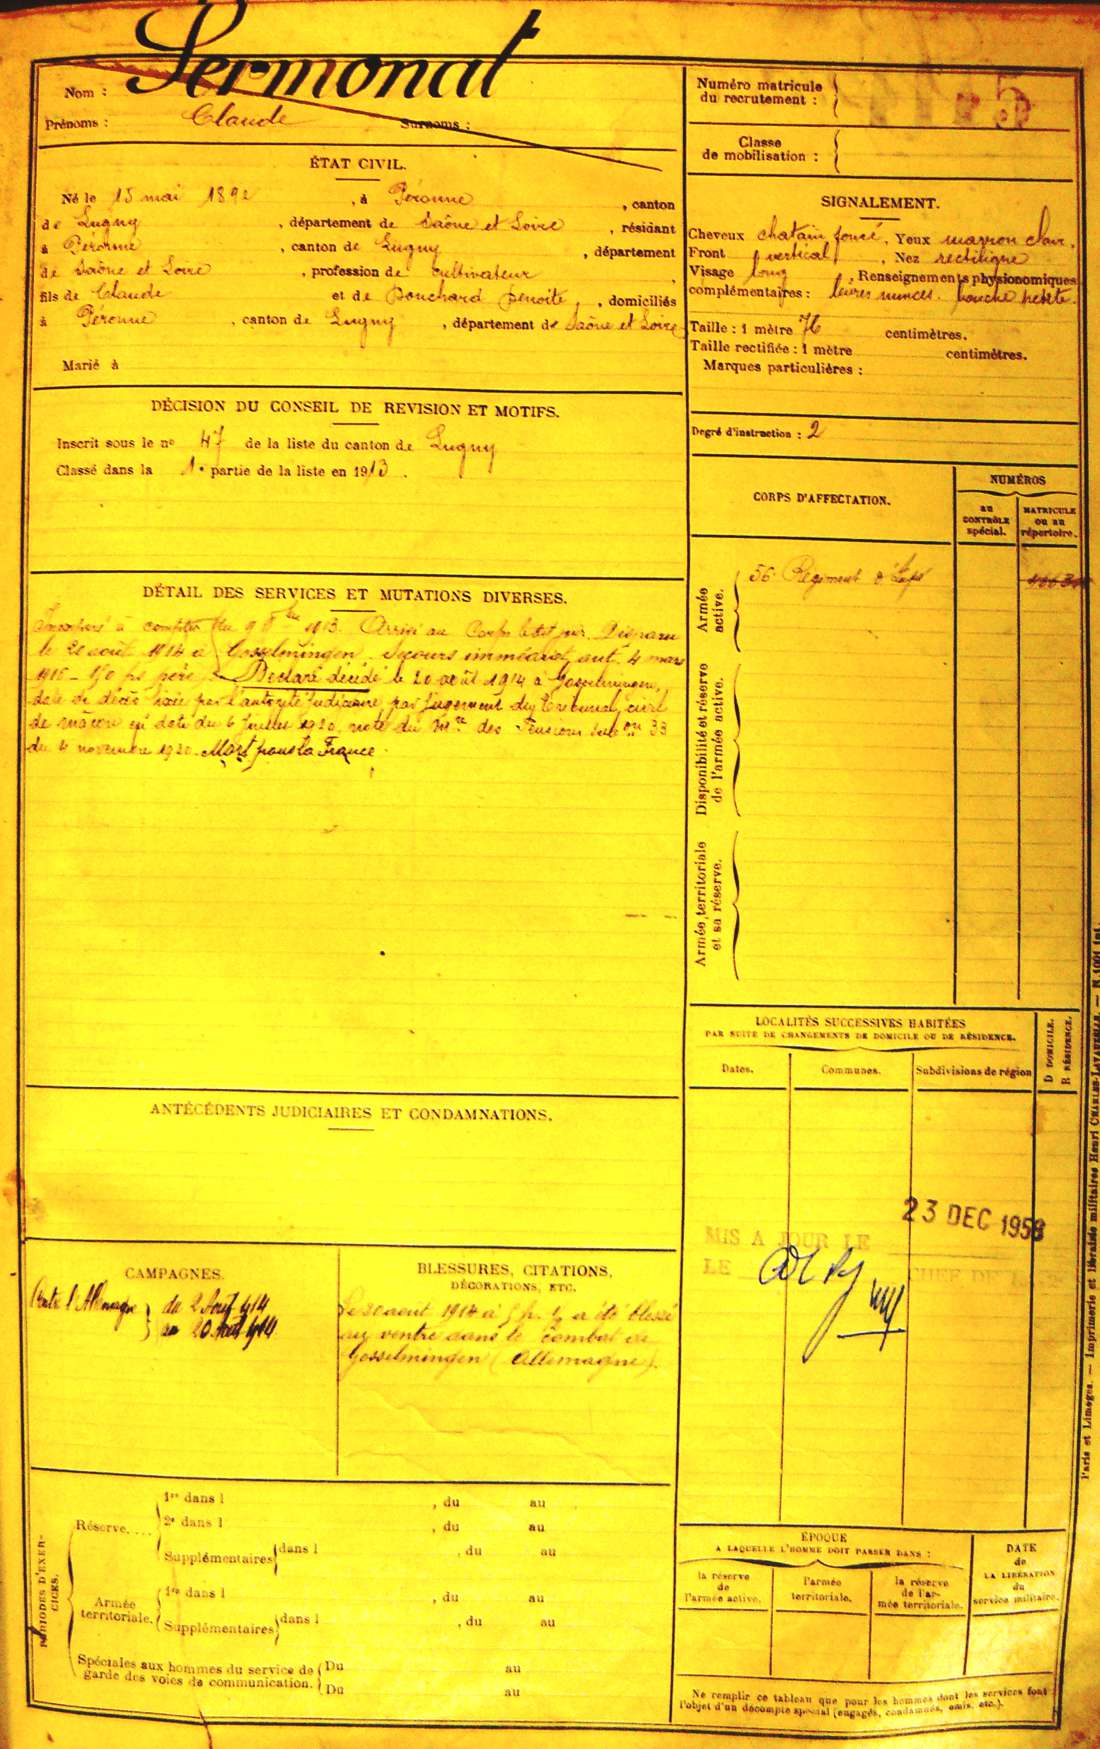 Nom : Sermonat
Prénoms : Claude Surnoms :
ÉTAT CIVIL.
Né le 15 mai 1892, à Péronne, canton
de Lugny, département de Saône et Loire, résidant
à Péronne, canton de Lugny, département
de Saône et Loire, profession de cultivateur,
fils de Claude et de Bouchard Benoite, domiciliés
à Péronne, canton de Lugny, département de Saône et Loire
Marié à
DÉCISION DU CONSEIL DE REVISION ET MOTIFS.
Inscrit sous le no 47 de la liste du canton de Lugny
Classé dans la 1e partie de la liste en 1913.
DÉTAIL DES SERVICES ET MUTATIONS DIVERSES.
Incorporé à compter du 9 8bre 1913. Arrivé au Corps le dit jour. Disparu
le 20 août 1914 à Gosselmingen. Secours immédiat, aut. 4 mars
1916 - 150 fs père. Déclaré décédé le 20 août 1914 à Gosselmingen,
date du décès fixée par l'autorité judiciaire, par jugement du Tribunal civil
de Mâcon en date du 6 juillet 1920, note du Mre des Pensions
du 4 novembre 1920. Mort pour la France.
ANTÉCÉDENTS JUDICIAIRES ET CONDAMNATIONS.
CAMPAGNES.
Contre l'Allemagne } du 2 Août 1914
au 20 Août 1914
BLESSURES, CITATIONS,
DÉCORATIONS, ETC.
Le 20 août 1914 à 5 h. ½ a été blessé
au ventre dans le combat de
Gosselmingen (Allemagne).
PÉRIODES D'EXERCICES.
Réserve....
1re dans l , du au
2e dans l , du au
Supplémentaires dans l , du au
Armée territoriale.
1re dans l , du au
Supplémentaires dans l , du au
Spéciales aux hommes du service de garde des voies de communication.
Du au
Du au
Numéro matricule
du recrutement :
Classe
de mobilisation :
SIGNALEMENT.
Cheveux chatain foncé, Yeux marron clair,
Front vertical, Nez rectiligne
Visage long, Renseignements physionomiques
complémentaires : lèvres minces. bouche petite.
Taille : 1 mètre 76 centimètres.
Taille rectifiée : 1 mètre centimètres.
Marques particulières :
Degré d'instruction : 2
CORPS D'AFFECTATION.
NUMÉROS
au CONTRÔLE spécial.
MATRICULE ou au répertoire.
Armée active.
56e Régiment d'Infie
Disponibilité et réserve de l'armée active.
Armée territoriale et sa réserve.
LOCALITÉS SUCCESSIVES HABITÉES
PAR SUITE DE CHANGEMENTS DE DOMICILE OU DE RÉSIDENCE.
D DOMICILE.
R RÉSIDENCE.
Dates. Communes. Subdivisions de région
23 DEC 1958
MIS A JOUR LE
LE CHEF DE
ÉPOQUE
A LAQUELLE L'HOMME DOIT PASSER DANS :
la réserve de l'armée active.
l'armée territoriale.
la réserve de l'armée territoriale.
DATE de LA LIBÉRATION du service militaire.
Ne remplir ce tableau que pour les hommes dont les services font
l'objet d'un décompte spécial (engagés, condamnés, omis, etc.).
Paris et Limoges. — Imprimerie et librairie militaires Henri CHARLES-LAVAUZELLE. — N. 1001 int.